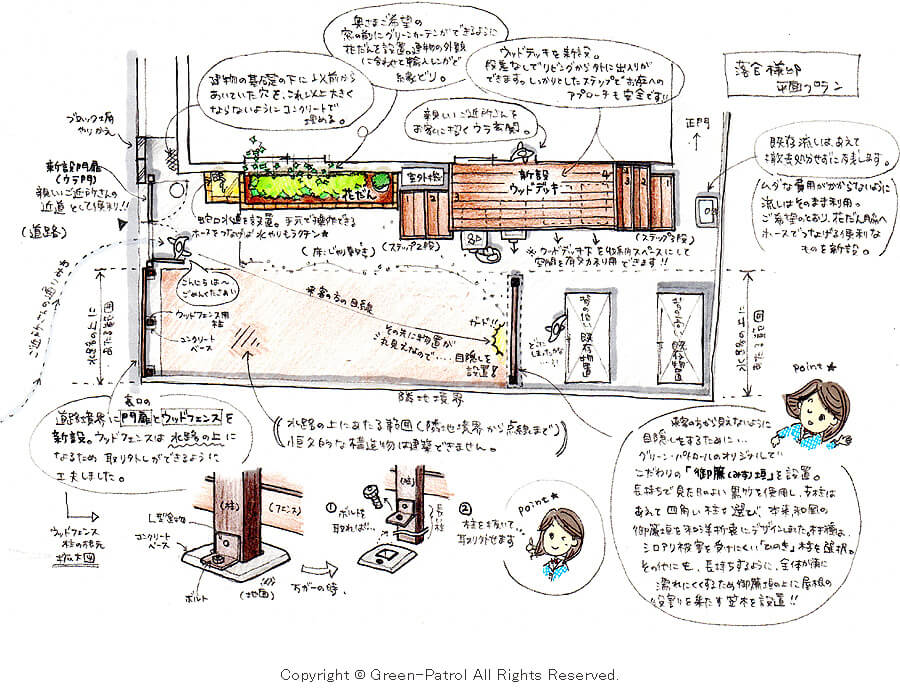 落合様邸
平面プラン
奥さまご希望の
窓の前にグリーンカーテンができるように
花だんを設置。建物の外観
に合わせて輸入レンガで
糸象ドリ。
ウッドデッキを新設。
段差なしでリビングから外に出入りが
できますっ。しっかりとしたステップでお庭への
アプローチも安全です!!
建物の基礎の下に以前から
あいていた穴を、これ以上大きく
ならないようにコンクリートで
埋める。
親しいご近所さんを
お客に招くウラ玄関。
ブロック2箇
やりかえ
正門
既存流しは、あえて
撤去処分せずに存します。
ムダな費用がかからないように
流しはそのまま利用。
ご希望のとおり、花だん脇へ
ホースでつなげる便利な
ものを新設。
新設門扉
(ウラ門)
親しいご近所さんの
近道として便利!!
(道路)
花だん
室外機
新設
ウッドデッキ
1
2
3
4
立水水道を設置。手元で操作できる
ホースをつなげば水やりもラクチン★
(床:じゃり敷き)
(ステップ2段)
(ステップ3段)
※ウッドデッキ下を収納スペースにして
空間を有効利用できます!!
こんにちは〜
ごめんください
ご近所さんの通り道
水路の上に
あたる範囲
ウッドフェンス用
柱
コンクリート
ベース
来客の方の目線
その先に物置が
これ見えなので…
目隠しを
設置!
ガード!!
どこに
しまったかな…
背の低い
既存物置
背の高い
既存物置
水路の上に
あたる範囲
隣地境界
Point★
裏口の
道路境界に門扉とウッドフェンスを
新設。ウッドフェンスは水路の上に
なるため取り外しができるように
工夫しました。
水路の上にあたる範囲(隣地境界から点線まで)
恒久的な構造物は建築できません。
来客の方から見えないように
目隠しをするために…
グリーン・パトロールのオリジナルで
こだわりの「御簾(みす)垣」を設置。
長持ちで見た目のよい黒竹を使用し、支柱は
あえて四角い柱を選び、本来和風の
御簾垣を和洋折衷にデザインしました。材種は、
シロアリ被害を受けにくい「ひのき」柱を選択。
その他にも、長持ちするように、全体が雨に
濡れにくくするため御簾垣の上に屋根の
役割りを果たす笠木を設置!!
ウッドフェンス
柱の根元
拡大図
L型金物
コンクリート
ベース
ボルト
(柱)
(フェンス)
(地面)
万が一の時、
①ボルトを
取れば!!…
(柱)
長い柱
②
柱を抜いて
取り外せます
Point★
Copyright © Green-Patrol All Rights Reserved.